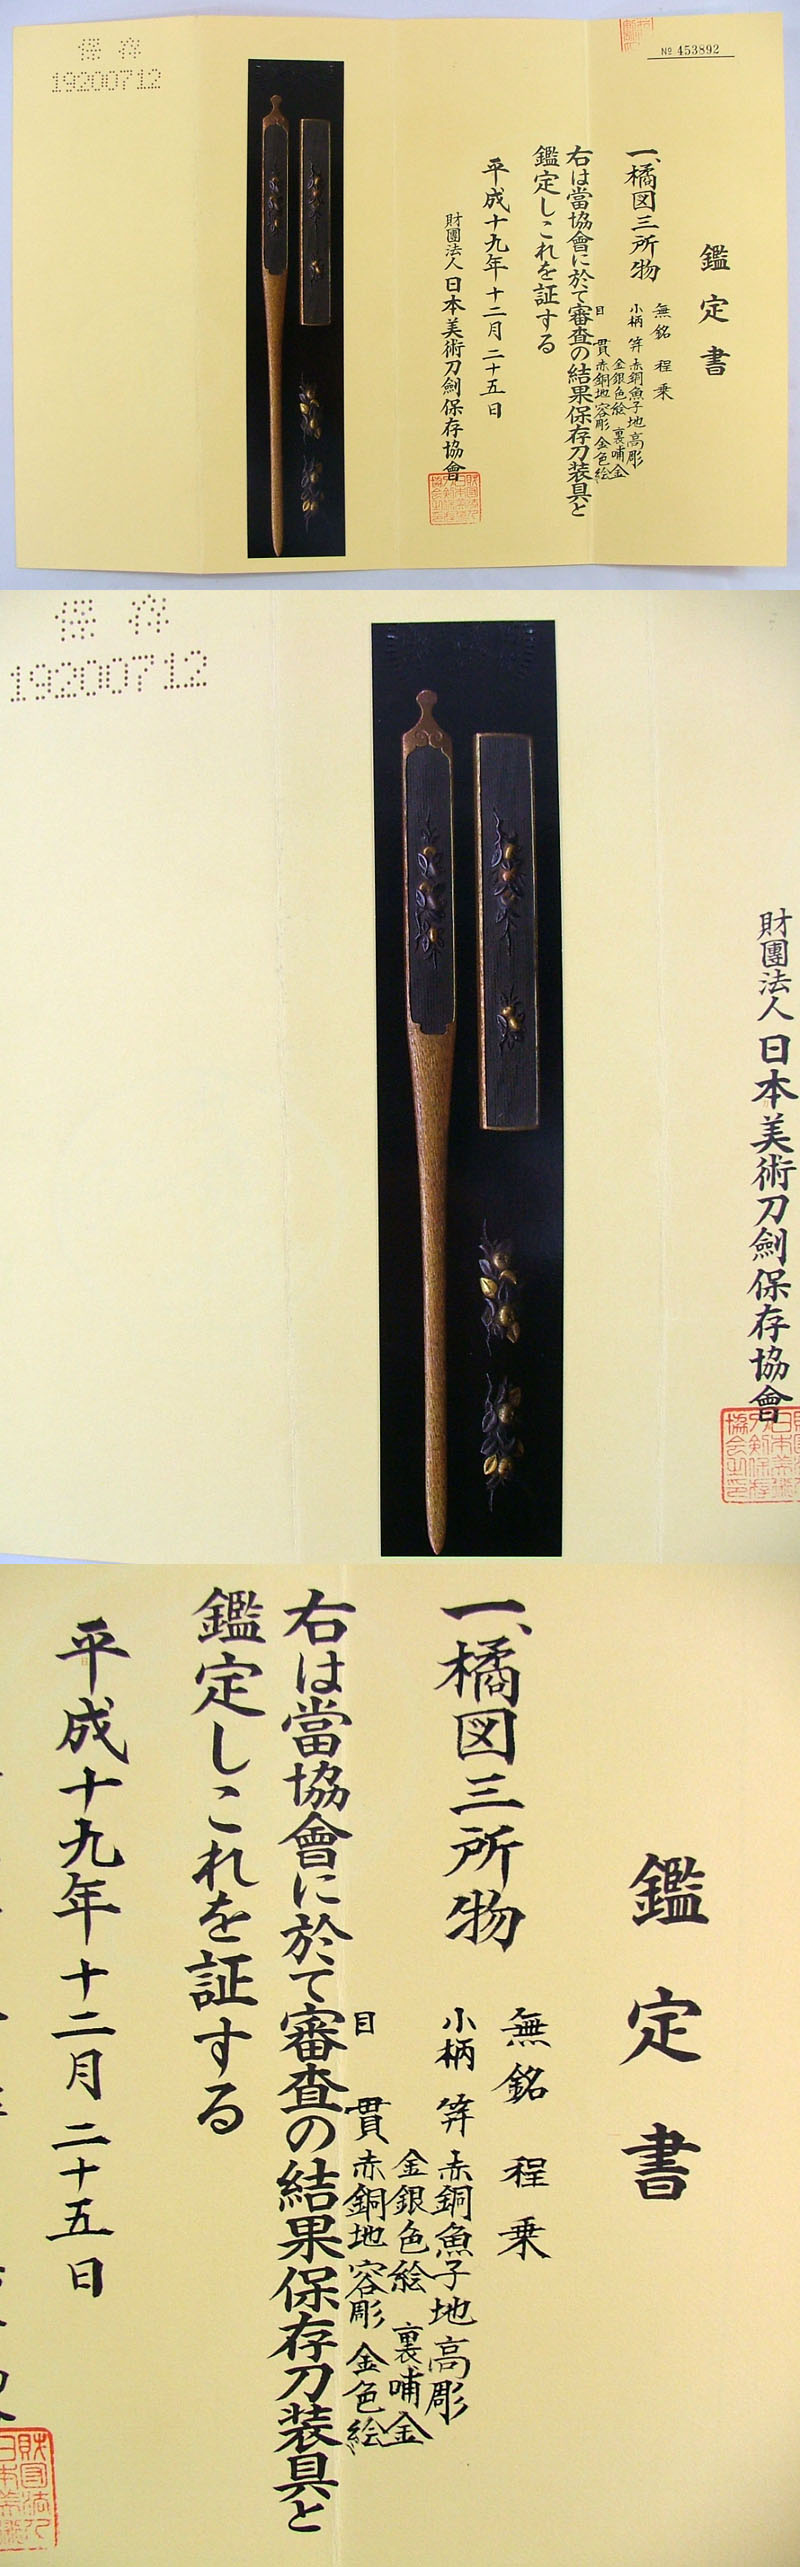 保存
19200712
№ 453892
鑑定書
一、橘図三所物
無銘 程乗
小柄 笄 赤銅魚子地高彫
金銀色絵 裏哺金
目貫 赤銅地容彫 金色絵
右は當協會に於て審査の結果保存刀装具と
鑑定しこれを証する
平成十九年十二月二十五日
財團法人 日本美術刀劍保存協會
保存
19200712
財團法人 日本美術刀劍保存協會
鑑定書
一、橘図三所物
無銘 程乗
小柄 笄 赤銅魚子地高彫
金銀色絵 裏哺金
目貫 赤銅地容彫 金色絵
右は當協會に於て審査の結果保存刀装具と
鑑定しこれを証する
平成十九年十二月二十五日